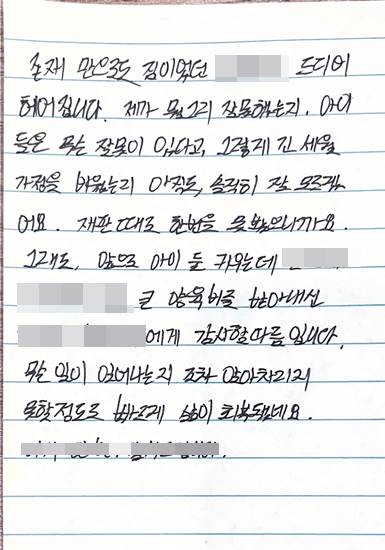 존재 만으로도 짐이었던 드디어
헤어집니다. 제가 뭘그리 잘못했는지. 아이
들은 무슨 잘못이 있다고, 그렇게 긴 세월
가정을 비웠는지 아직도, 솔직히 잘 모르겠
어요. 재판 때도 한번을 못봤으니까요.
그래도, 앞으로 아이 둘 키우는데
큰 양육비를 받아내신
에게 감사할따름 입니다.
무슨 일이 일어나는지 조차 알아차리지
못할정도로 빠르게 삶이 회복되네요.